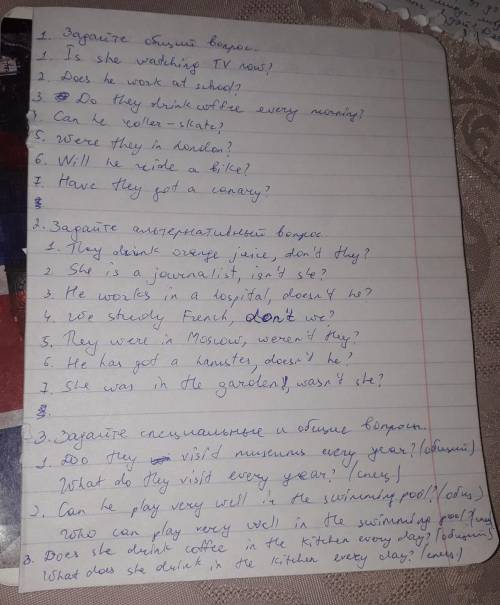 1. Задайте общий вопрос.
1. Is she watching TV now?
2. Does he work at school?
3. Do they drink coffee every morning?
4. Can he roller-skate?
5. Were they in London?
6. Will he ride a bike?
7. Have they got a canary?
2. Задайте альтернативный вопрос.
1. They drink orange juice, don't they?
2. She is a journalist, isn't she?
3. He works in a hospital, doesn't he?
4. We study French, don't we?
5. They were in Moscow, weren't they?
6. He has got a hamster, doesn't he?
7. She was in the garden, wasn't she?
3. Задайте специальные и общие вопросы.
1. Do they visit museums every year? (общий)
What do they visit every year? (спец)
2. Can he play very well in the swimming pool? (общ)
Who can play very well in the swimming pool?
3. Does she drink coffee in the kitchen every day? (общий)
What does she drink in the kitchen every day? (спец)